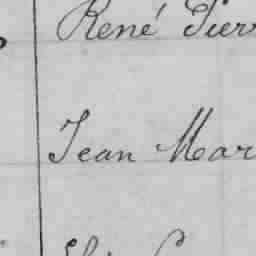 René Pierr
Jean Mar